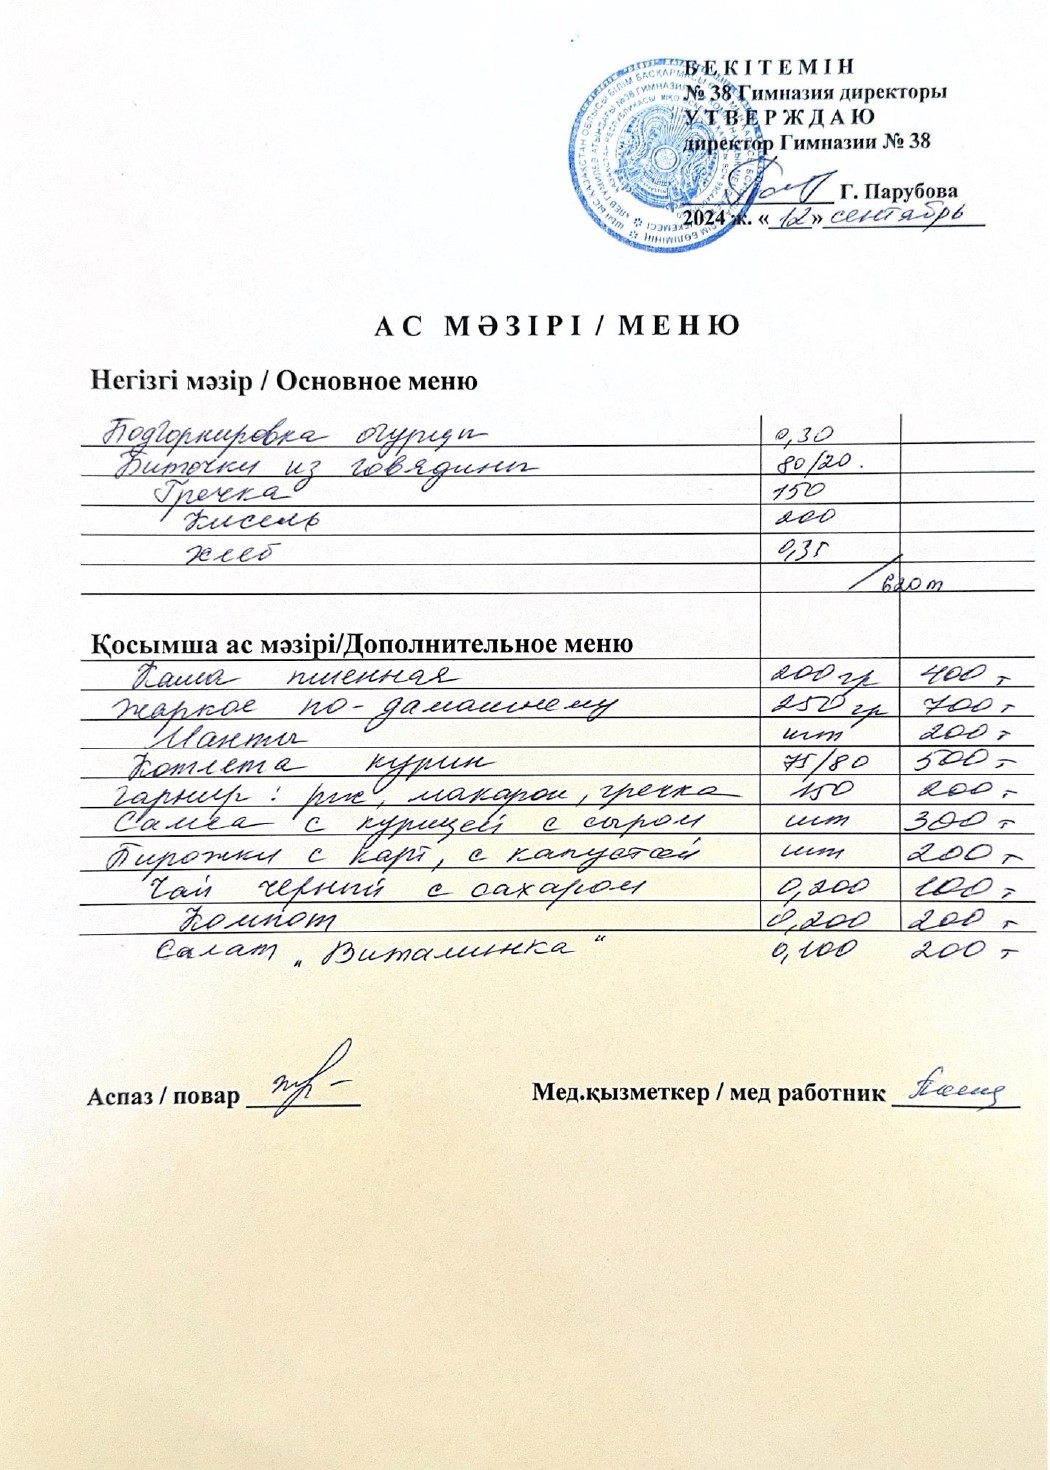 БЕКІТЕМІН
№ 38 Гимназия директоры
УТВЕРЖДАЮ
директор Гимназии № 38
Г. Парубова
2024 ж. «12» сентябрь
АС МӘЗІРІ / МЕНЮ
Негізгі мәзір / Основное меню
Подгорнировка огурцы 0,30
Биточки из говядины 80/20.
Гречка 150
Кисель 200
Хлеб 0,35
Қосымша ас мәзірі/Дополнительное меню
Каша пшенная 200 гр 400 т
Жаркое по-дамашнему 250 гр 700 т
Манты шт 200 т
Котлета курин 75/80 500 т
Гарнир: рис, макарон, гречка 150 200 т
Самса с курицей с сыром шт 300 т
Пирожки с карт, с капустой шт 200 т
Чай черный с сахаром 0,200 100 т
Компот 0,200 200 т
Салат „Витаминка" 0,100 200 т
Аспаз / повар Мед.қызметкер / мед работник